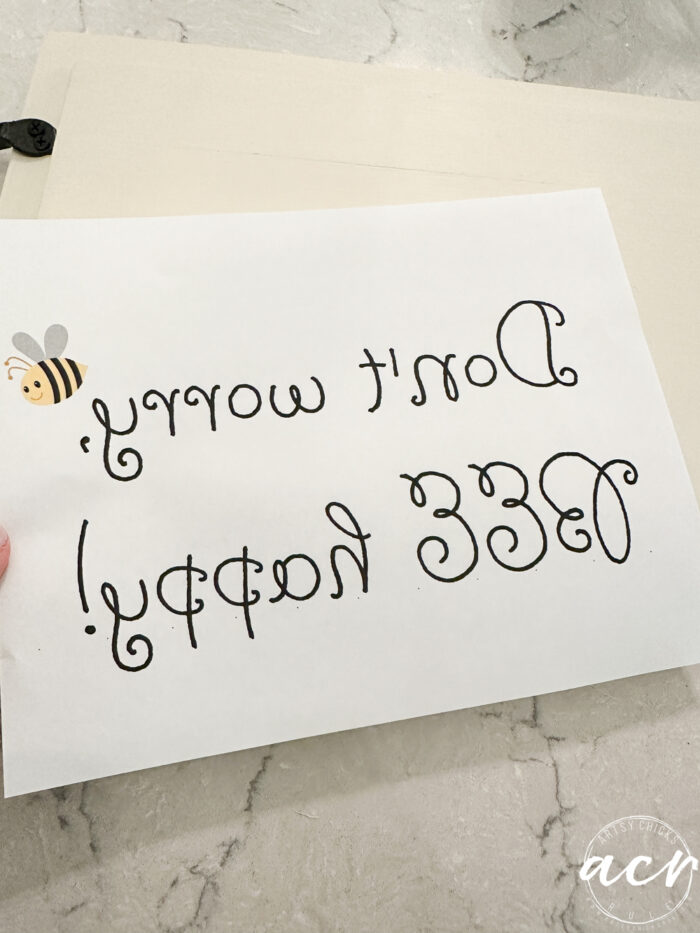 Don't worry,
BEE happy!
ARTSY CHICKS
acr
RULE